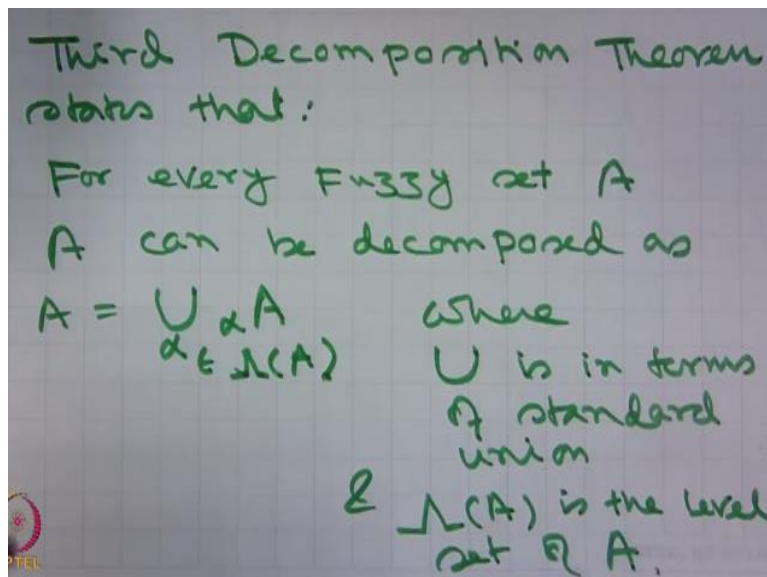 Third Decomposition Theorem
states that:
For every Fuzzy set A
A can be decomposed as
A = ∪ αA where
α ∈ Λ(A) ∪ is in terms
of standard
union
& Λ(A) is the level
set of A.
PTEL